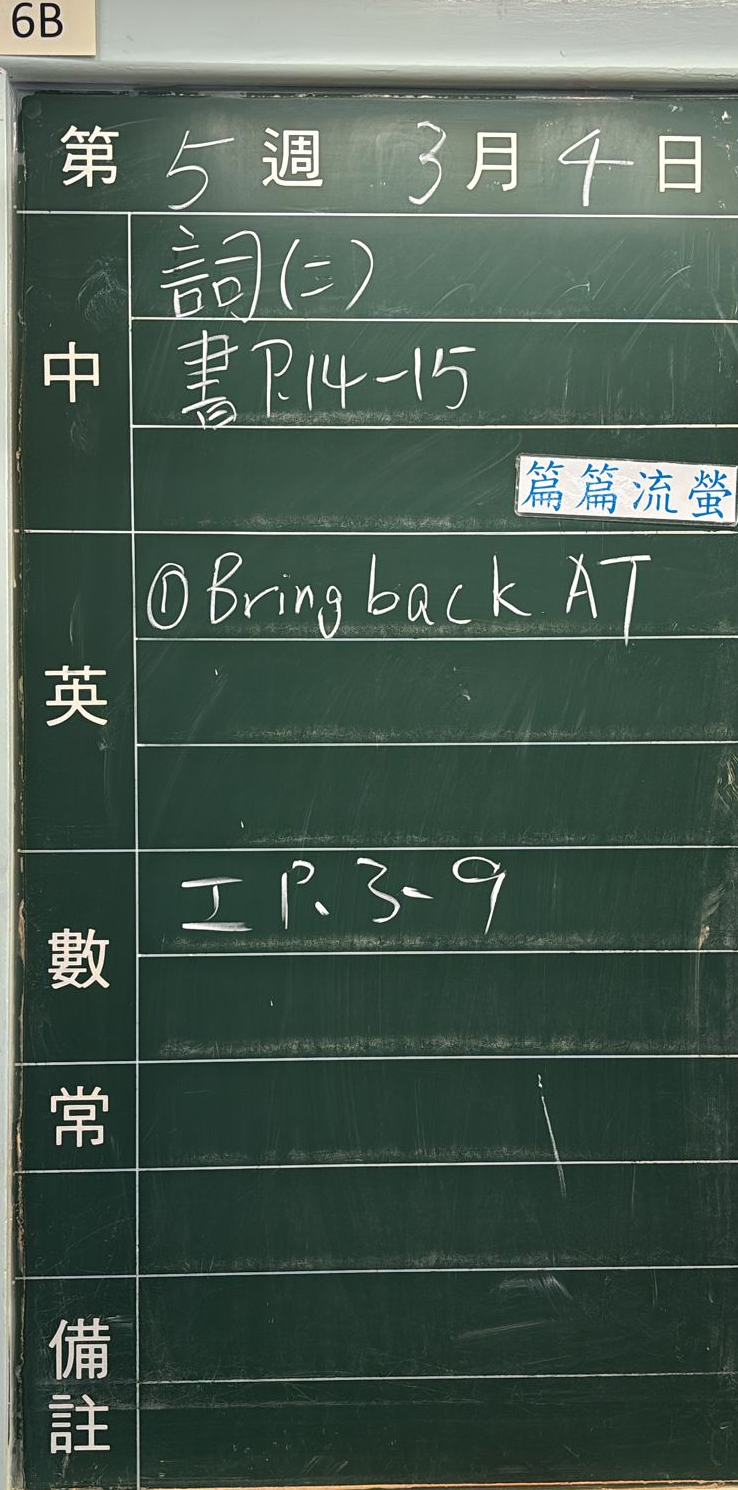 6B
第 5 週 3 月 4 日
中
詞(二)
書 P.14-15
篇篇流螢
英
① Bring back AT
數
工 P. 3-9
常
備註